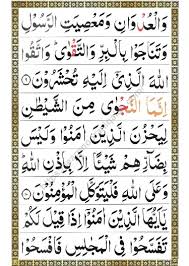 وَالْعُدْوَانِ وَمَعْصِيَتِ الرَّسُوْلِ
وَتَنَاجَوْا بِالْبِرِّ وَالتَّقْوٰىؕ وَاتَّقُوا
اللّٰهَ الَّذِیْۤ اِلَيْهِ تُحْشَرُوْنَ ۹
اِنَّمَا النَّجْوٰى مِنَ الشَّيْطٰنِ
لِيَحْزُنَ الَّذِيْنَ اٰمَنُوْا وَلَيْسَ
بِضَآرِّهِمْ شَيْـًٔا اِلَّا بِاِذْنِ اللّٰهِؕ
وَعَلَى اللّٰهِ فَلْيَتَوَكَّلِ الْمُؤْمِنُوْنَ ۱۰
يٰۤاَيُّهَا الَّذِيْنَ اٰمَنُوْۤا اِذَا قِيْلَ لَكُمْ
تَفَسَّحُوْا فِى الْمَجٰلِسِ فَافْسَحُوْا